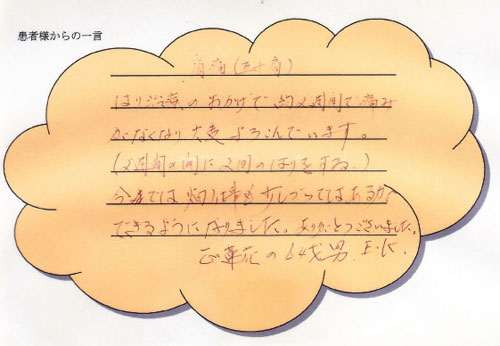 患者様からの一言
肩痛(五十肩)
はり治療のおかげで約2週間で痛み
がなくなり大変よろこんでいます。
(2週間の間に2回のはりをする。)
今までは畑仕事も少しづつではあるが
できるようになりました。ありがとうございました。
の64才男 E.K.